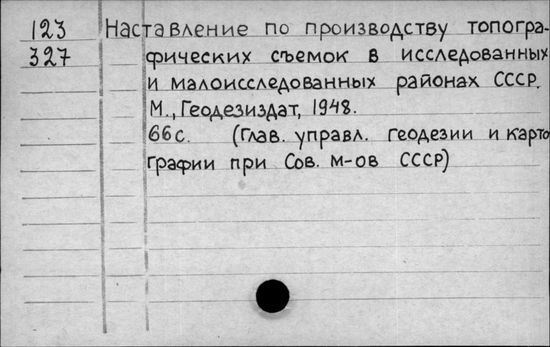 123 Наставление по производству топогра-
327 фических съемок в исследованных
и малоисследованных районах СССР.
М., Геодезиздат, 1948.
66с. (Глав. управл. геодезии и карто
графии при Сов. м-ов СССР)